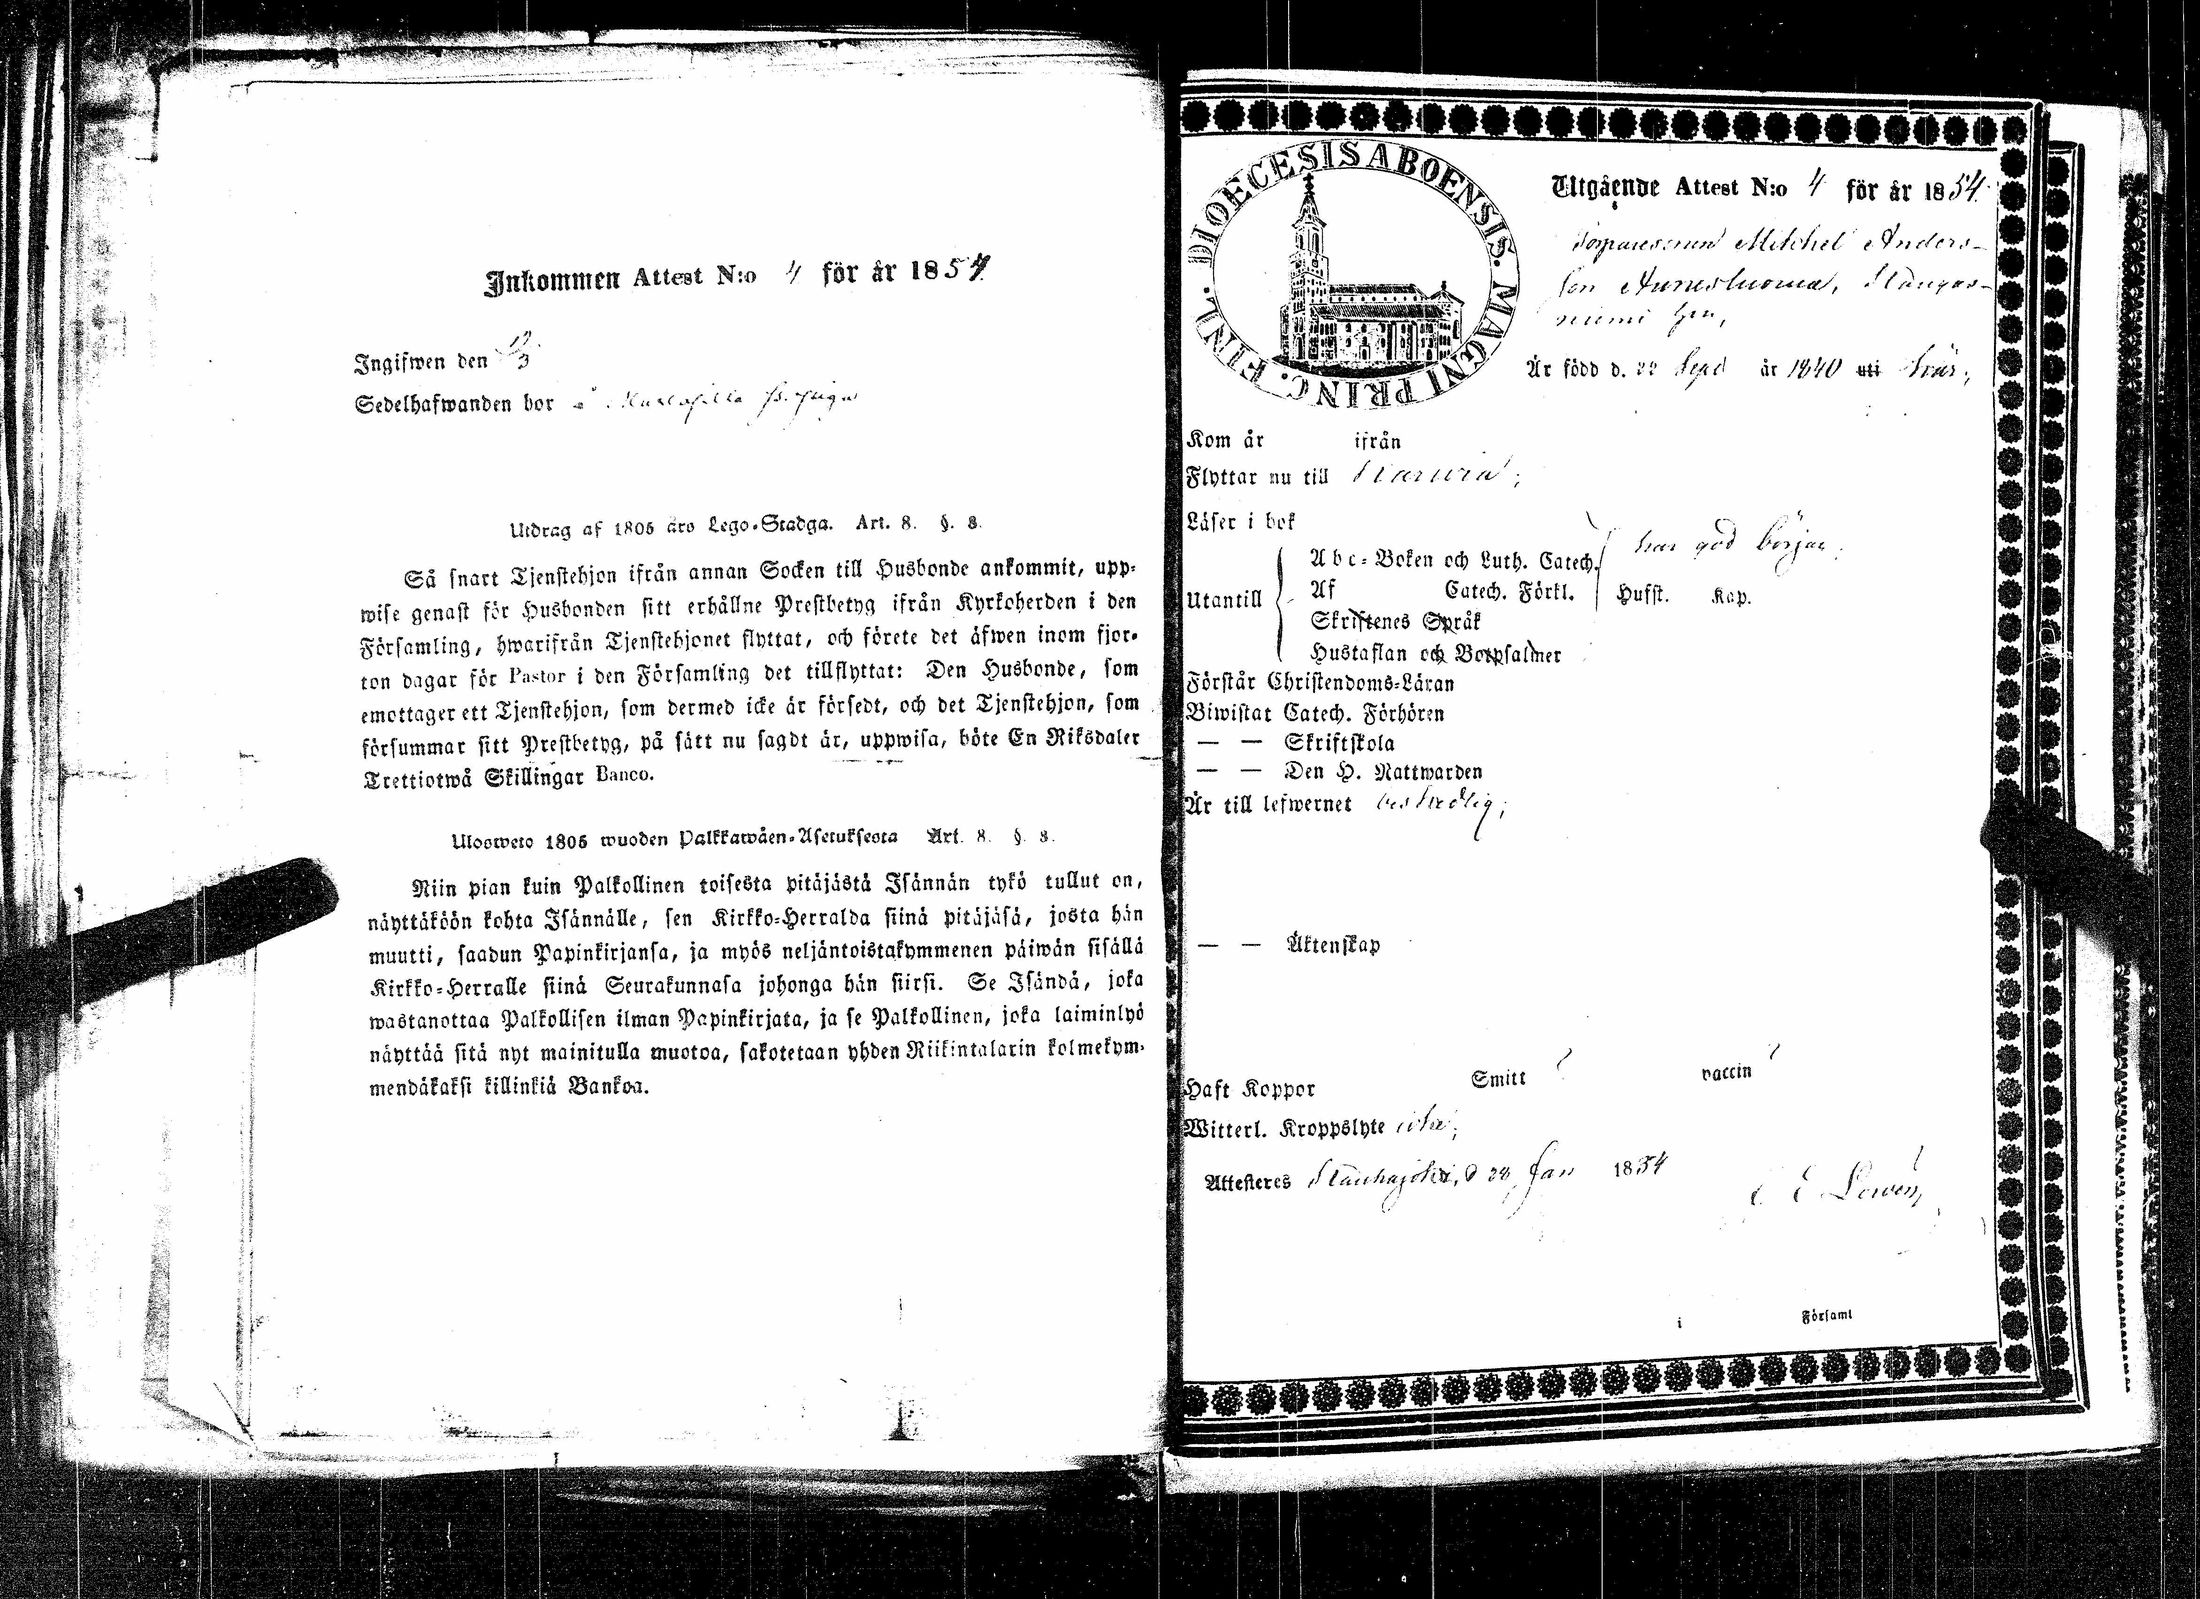 Inkommen Attest N:o 4 för år 1854
Ingifwen den
Sedelhafwanden bor
Utdrag af 1805 års Lego-Stadga. Art. 8. §. 8.
Så snart Tjenstehjon ifrån annan Socken till Husbonde ankommit, upp-
wise genast för Husbonden sitt erhållne Prestbetyg ifrån Kyrkoherden i den
Församling, hwarifrån Tjenstehjonet flyttat, och förete det äfwen inom fjor-
ton dagar för Pastor i den Församling det tillflyttat: Den Husbonde, som
emottager ett Tjenstehjon, som dermed icke är försedt, och det Tjenstehjon, som
försummar sitt Prestbetyg, på sätt nu sagdt är, uppwisa, böte En Riksdaler
Trettiotwå Skillingar Banco.
Ulosweto 1805 wuoden Palkkawäen-Asetuksesta Art. 8. §. 8.
Niin pian kuin Palkollinen toisesta pitäjästä Isännän tykö tullut on,
näyttäköön kohta Isännälle, sen Kirkko-Herralda siinä pitäjäsä, josta hän
muutti, saadun Papinkirjansa, ja myös neljäntoistakymmenen päiwän sisällä
Kirkko-Herralle siinä Seurakunnasa johonga hän siirsi. Se Isändä, joka
wastanottaa Palkollisen ilman Papinkirjata, ja se Palkollinen, joka laiminlyö
näyttää sitä nyt mainitulla muotoa, sakotetaan yhden Riikintalarin kolmekym-
mendäkaksi killinkiä Bankoa.
DIOECESIS ABOENSIS. MAGNI PRINC. FINL.
Utgående Attest N:o 4 för år 1854.
Mitchel Anders-
son
Är född d. 22 Sept år 1840 uti
Kom år ifrån
Flyttar nu till
Läser i bok
Utantill
Abc-Boken och Luth. Catech. har god början.
Af Catech. Förkl. Hufst. Kap.
Skriftenes Språk
Hustaflan och Botpsalmer
Förstår Christendoms-Läran
Biwistat Catech. Förhören
— — Skriftskola
— — Den H. Nattwarden
Är till lefwernet beskedlig;
— — Äktenskap
Haft Koppor Smitt vaccin
Witterl. Kroppslyte icke;
Attesteres d 28 Jan 1854
i Församl